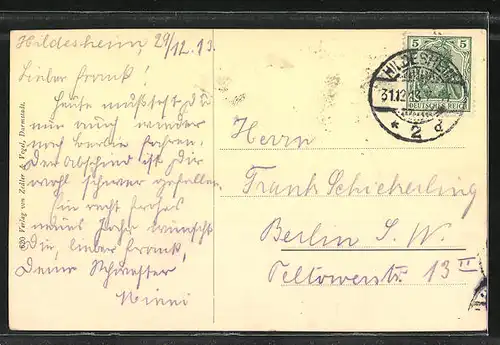 Hildesheim, 29/12.13.
Lieber Frank!
Heute mußtest du
nur auch wieder
nach Berlin fahren.
Der Abschied ist dir
wohl schwer gefallen.
Ein recht frohes
neues Jahr wünscht
Dir, lieber Frank,
Deine Schwester
Minni
620 Verlag von Zedler & Vogel, Darmstadt.
5 5
DEUTSCHES REICH
HILDESHEIM
31.12.13
* 2 d
Herrn
Frank Schickerling
Berlin S. W.
Teltowerstr. 13 II